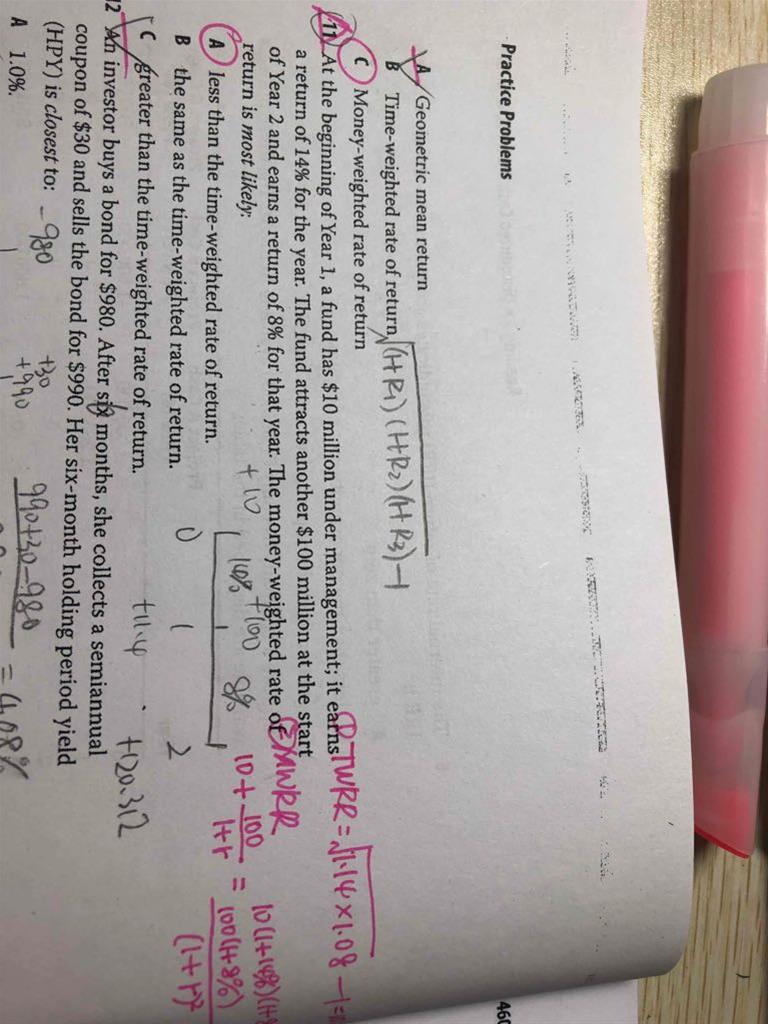 Practice Problems
460
A Geometric mean return
B Time-weighted rate of return
√(1+R1)(1+R2)(1+R3) -1
C Money-weighted rate of return
11 At the beginning of Year 1, a fund has $10 million under management; it earns
a return of 14% for the year. The fund attracts another $100 million at the start
of Year 2 and earns a return of 8% for that year. The money-weighted rate of
return is most likely:
A less than the time-weighted rate of return.
B the same as the time-weighted rate of return.
C greater than the time-weighted rate of return.
① TWRR = √1.14×1.08 -1=
② MWRR
10 + 100/1+r = 10(1+14%)(1+8 100(1+8%)/(1+r)²
+10 +100
14% 8%
0 1 2
+11.4 +120.312
12 An investor buys a bond for $980. After six months, she collects a semiannual
coupon of $30 and sells the bond for $990. Her six-month holding period yield
(HPY) is closest to:
-980 +30
+990
990+30-980 = 4.08%
A 1.0%.